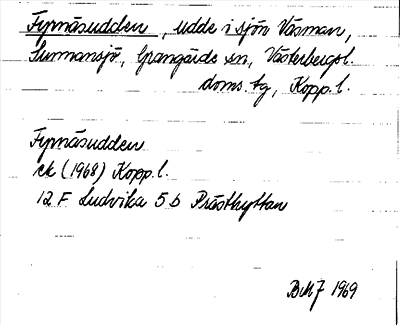 Fyrnäsudden, udde i sjön Väsman,
Sunnansjö, Grangärde sn, Västerbergsl.
doms. tg, Kopp. l.
Fyrnäsudden
ek (1968) Kopp. l.
12 F Ludvika 5 b Prästhyttan
1969